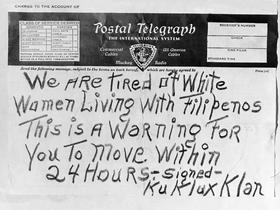 CHARGE TO THE ACCOUNT OF
CLASS OF SERVICE DESIRED
Postal Telegraph
THE INTERNATIONAL SYSTEM
Commercial Cables
All America Cables
Mackay Radio
RECEIVER'S NUMBER
CHECK
TIME FILED
STANDARD TIME
Send the following message, subject to the terms on back hereof, which are hereby agreed to
We ARe TiReD of White
Women Living With filipenos
This is a WARning foR
You To Move Within
24 HouRs- Signed-
Ku Klux Klan